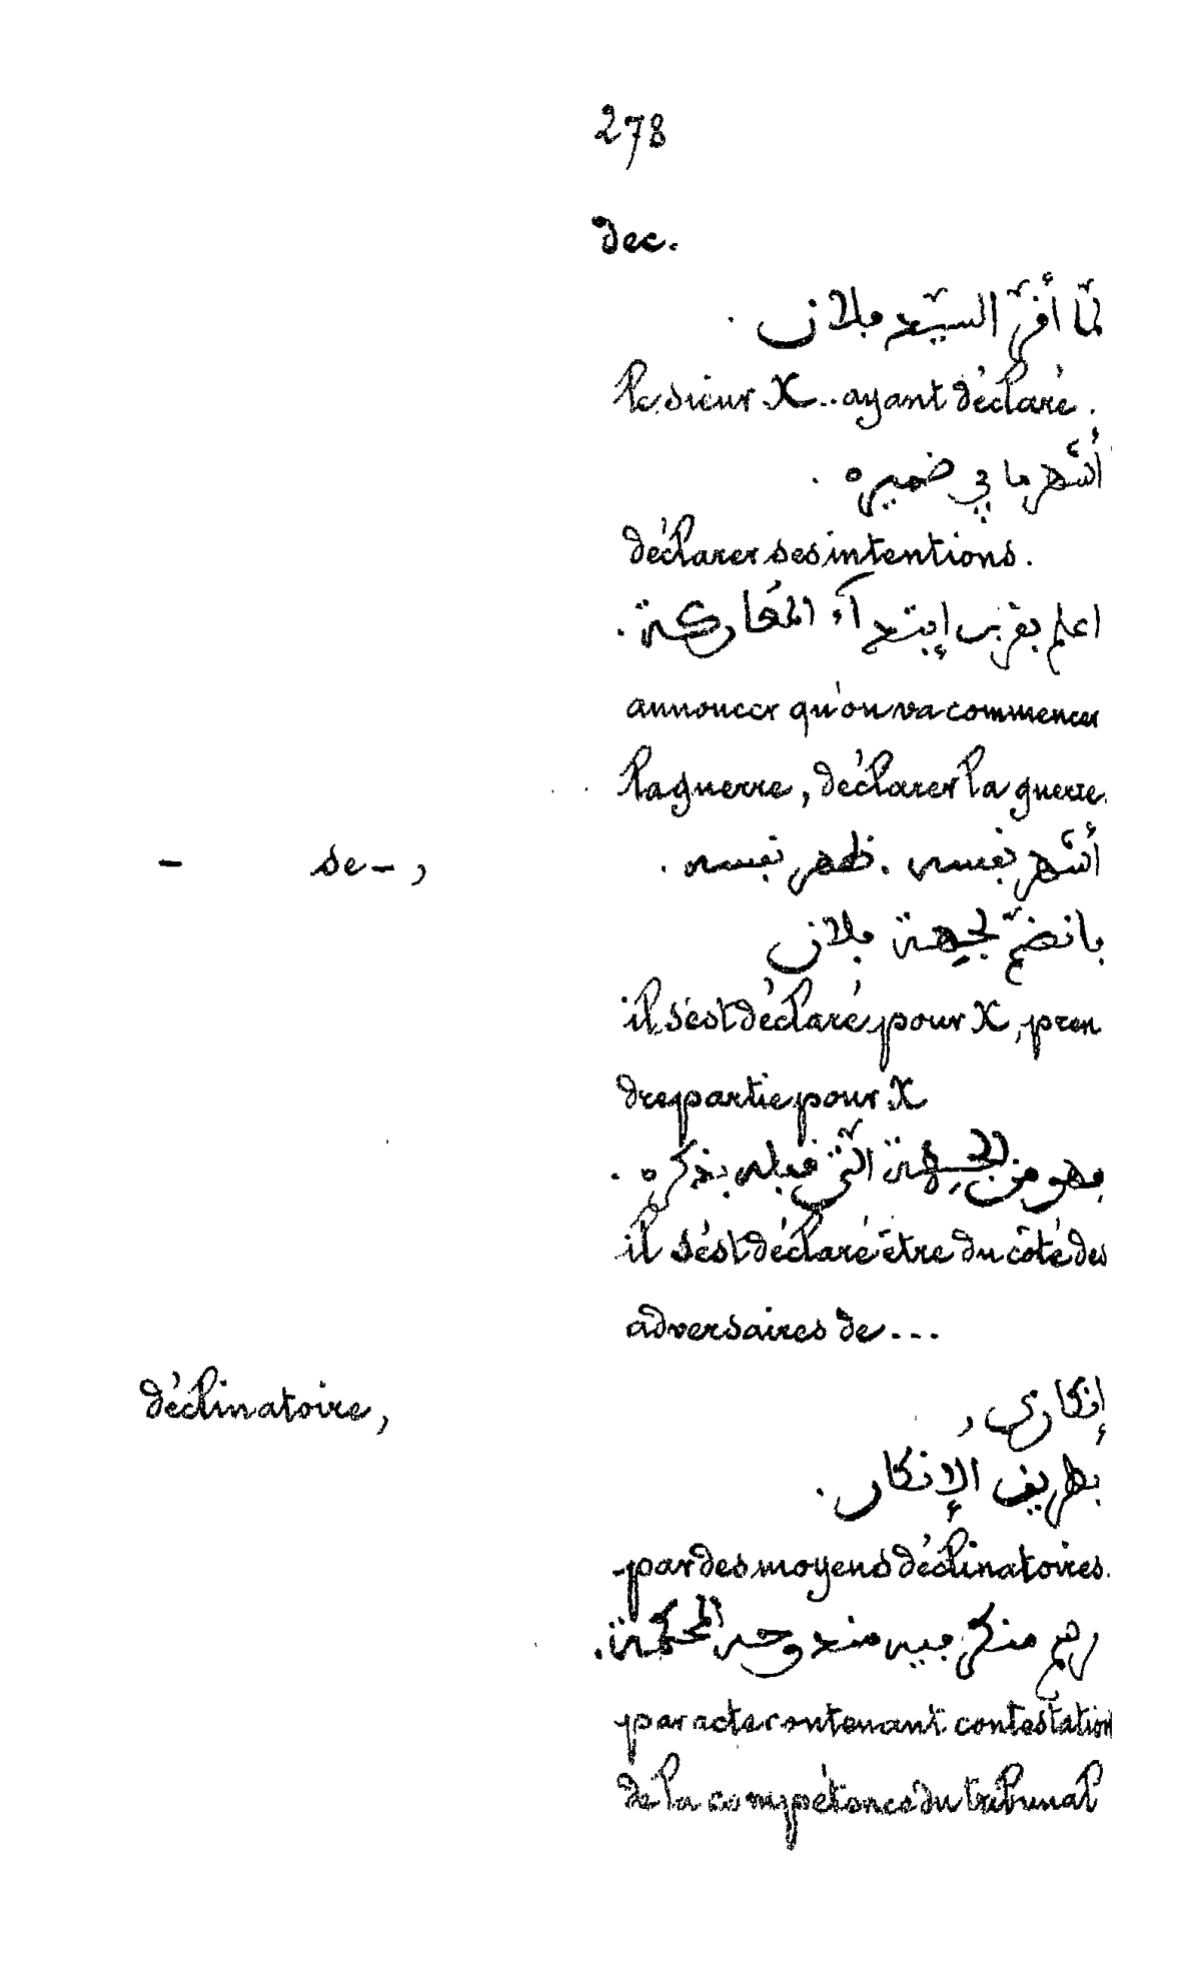 278
dec.
لمّا أقرّ السيّد فلان.
le sieur X.. ayant déclaré.
أشهر ما في ضميره.
déclarer ses intentions.
اعلم بقرب إبتدآء المعاركة.
annoncer qu'on va commencer
la guerre, déclarer la guerre.
- se-, أشهر نفسه. ظهر نفسه.
بانضمّ لجهة فلان
il s'est déclaré pour X, pren
dre partie pour X
فهو من الجهة التي قبله بذكره.
il s'est déclaré être du côté des
adversaires de...
déclinatoire, إنكاري,
بطريق الإنكار.
-par des moyens déclinatoires.
رسم منكر فيه المحكمة.
par acte contenant contestation
de la compétence du tribunal